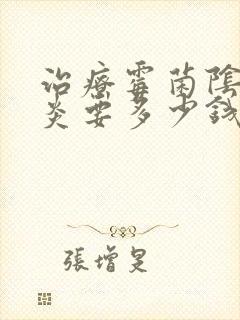 治療霉菌陰
炎要多少錢
張增旻